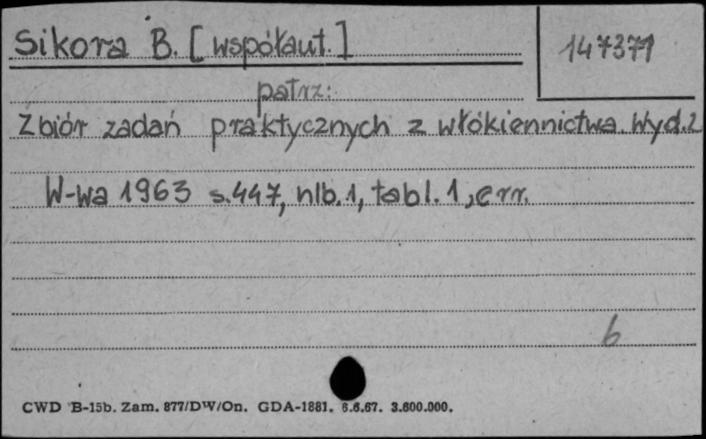 Sikora B. [współaut.]
147371
patrz:
Zbiór zadań praktycznych z włókiennictwa. Wyd.2
W-wa 1963 s.447, nlb.1, tabl.1, err.
6
CWD B-15b. Zam. 877/DW/On. GDA-1881. 6.6.67. 3.600.000.